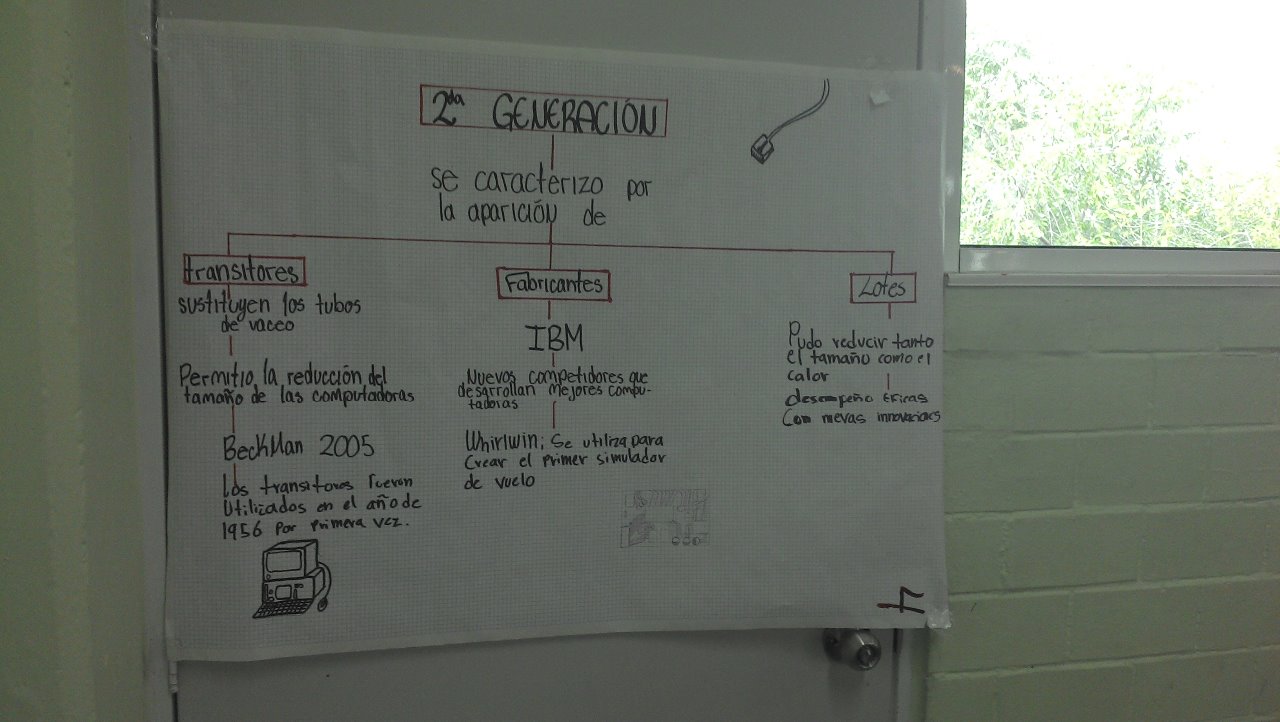 2da GENERACIÓN
se caracterizo por
la aparición de
transitores
sustituyen los tubos
de vaceo
Permitio la reducción del
tamaño de las computadoras
BeckMan 2005
Los transitores fueron
Utilizados en el año de
1956 por primera vez.
Fabricantes
IBM
Nuevos competidores que
desarrollan mejores compu-
tadoras
Whirlwin; Se utiliza para
Crear el primer simulador
de vuelo
Lotes
Pudo reducir tanto
el tamaño como el
calor
desempeño
Con nuevas innovaciones
4